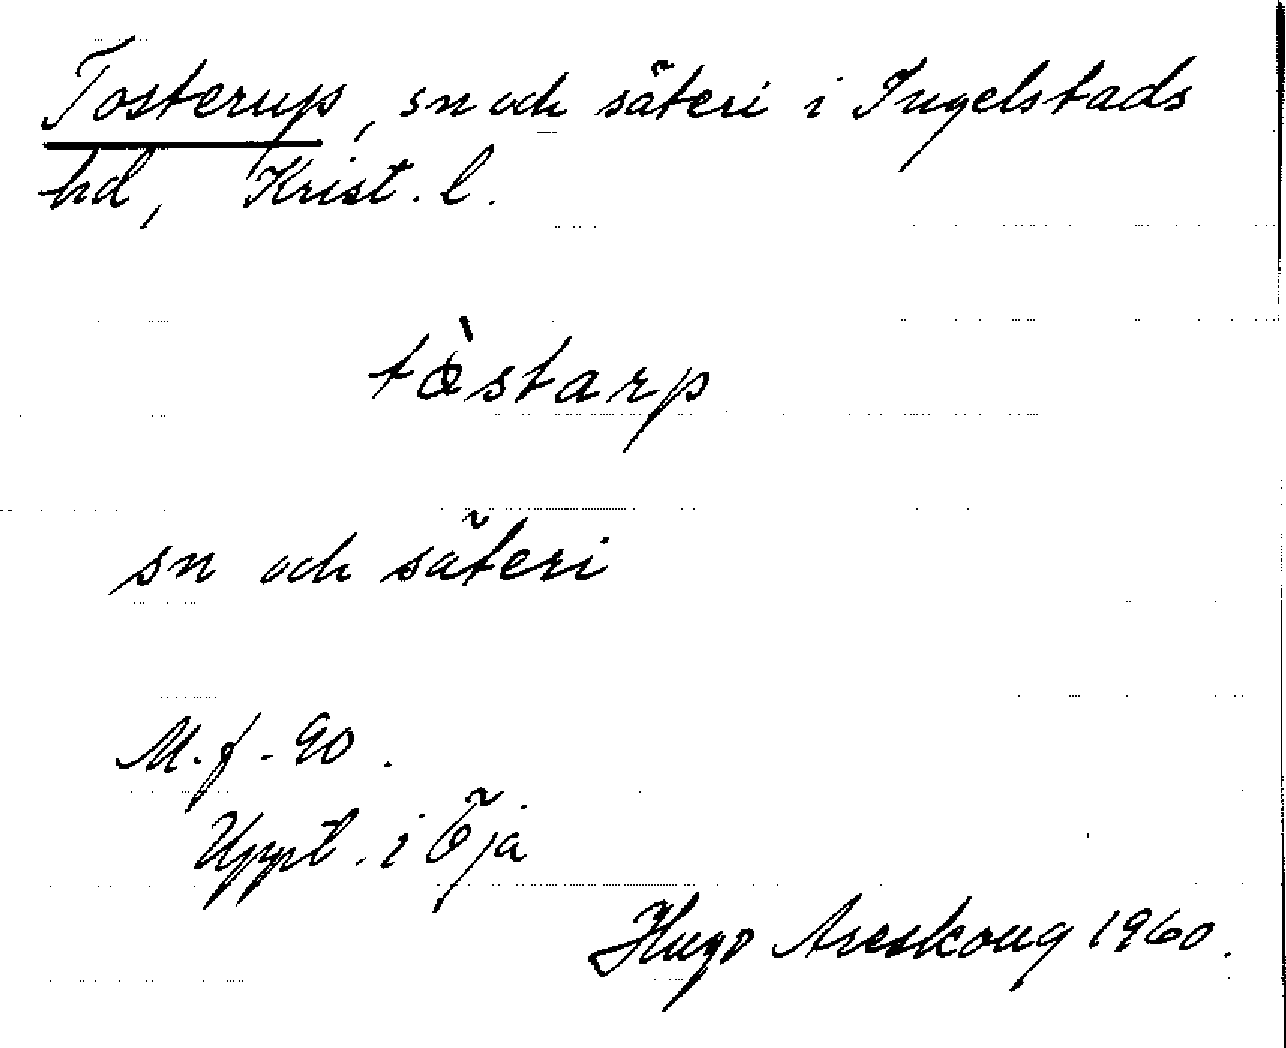 Tosterup, sn och säteri i Ingelstads
hd, Krist. l.
tòstarp
sn och säteri
M. f. 90.
Uppt. i Öja
Hugo Areskoug 1960.